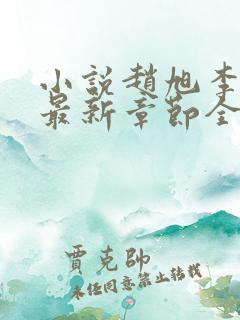 小說趙旭李
最新章節全
賈克帥
未經同意禁止转载